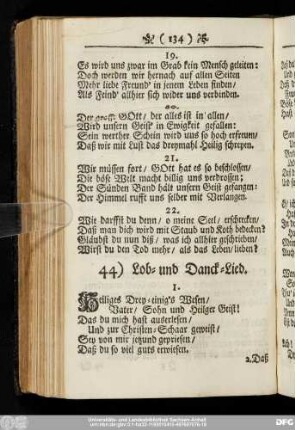 ( 134 )
19.
Es wird uns zwar im Grab kein Mensch geleiten:
Doch werden wir hernach auf allen Seiten
Mehr liebe Freund' in jenem Leben finden/
Als Feind' allhier sich wider uns verbinden.
20.
Der grosse GOtt/ der alles ist in allen/
Wird unsern Geist in Ewigkeit gefallen:
Sein werther Schein wird uns so hoch erfreun/
Daß wir mit Lust das dreymahl Heilig schreyen.
21.
Wir müssen fort/ GOtt hat es so beschlossen/
Die böse Welt macht billig uns verdroßen;
Der Sünden Band hält unsern Geist gefangen:
Der Himmel rufft uns selber mit Verlangen.
22.
Wie darffst du denn/ o meine Seel/ erschrecken/
Daß man dich wird mit Staub und Koth bedecken?
Gläubst du nun diß/ was ich allhier geschrieben/
Wirst du den Tod mehr/ als das Leben/ lieben?
44) Lob- und Danck-Lied.
1.
Heiliges Drey-einig's Wesen/
Vater/ Sohn und Heilger Geist!
Das du mich hast auserlesen/
Und zur Christen-Schaar geweist/
Sey von mir jetzund gepriesen/
Daß du so viel guts erwiesen.
2. Daß